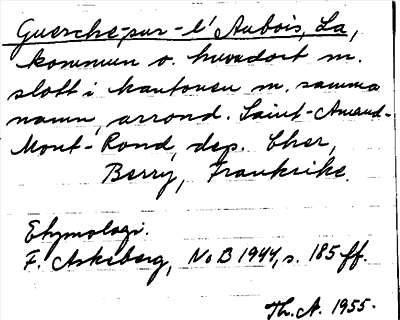 Guerche-sur-l'Aubois, La,
kommun o. huvudort m.
slott i kantonen m. samma
namn, arrond. Saint-Amand-
Mont-Rond, dep. Cher,
Berry, Frankrike.
Etymologi.
F. Askeberg, NoB 1944, s. 185 ff.
Th. A. 1955.